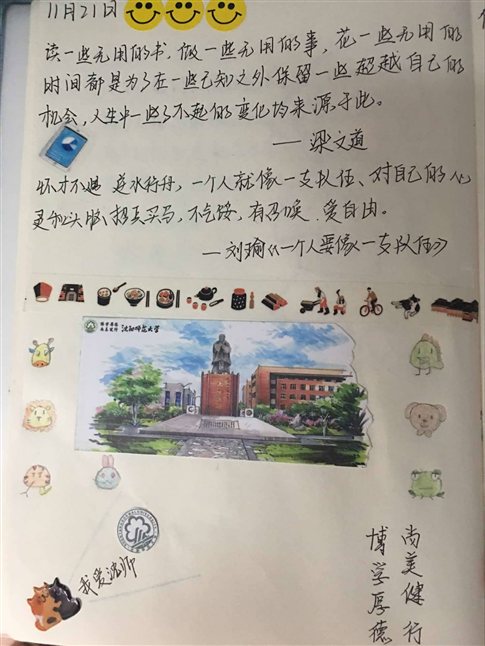 11月21日
读一些无用的书,做一些无用的事,花一些无用的
时间都是为了在一些已知之外保留一些超越自己的
机会,人生中一些了不起的变化均来源于此。
——梁文道
怀才不遇 逆水行舟,一个人就像一支队伍、对自己的心
灵和头脑招兵买马,不气馁,有召唤、爱自由。
——刘瑜《一个人要像一支队伍》
沈阳师范大学
我爱沈师
尚美健行
博学厚德